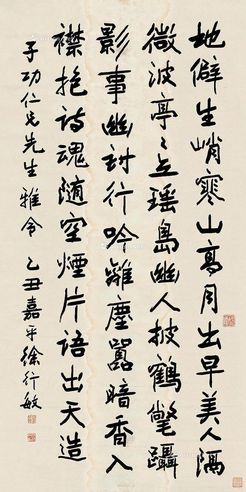 地僻生峭寒山高月出早美人隔
微波亭亭立瑶島幽人披鶴氅躡
影事幽討行吟離塵嚣暗香入
襟抱詩魂隨空煙片語出天造
子功仁兄先生雅令 乙丑嘉平徐行敏